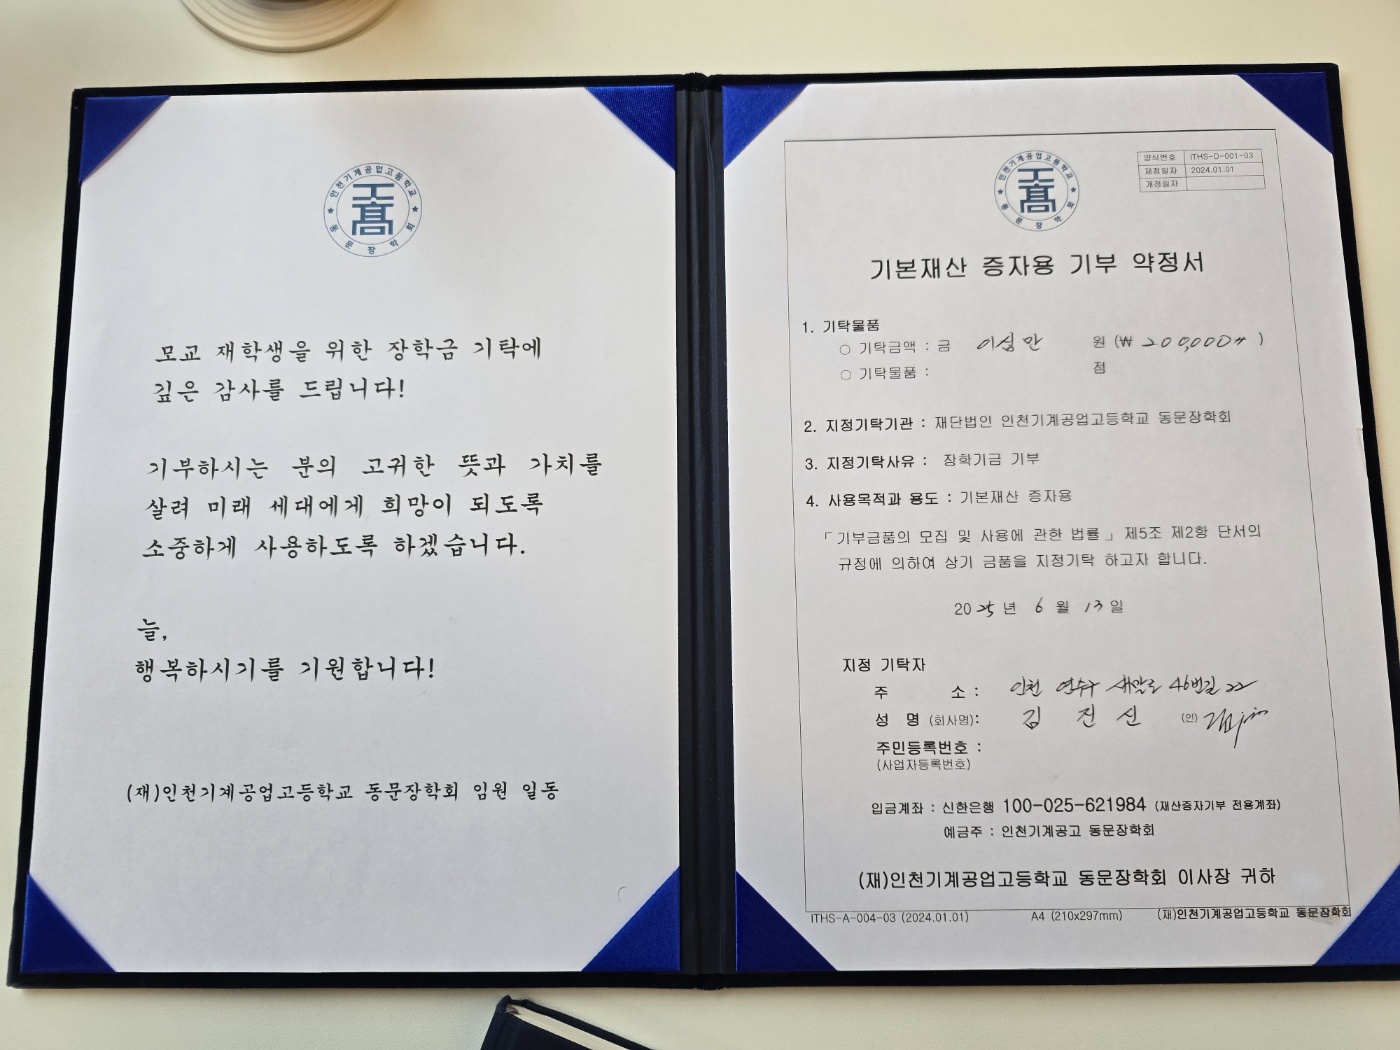 인천기계공업고등학교
工高
동문장학회
모교 재학생을 위한 장학금 기탁에
깊은 감사를 드립니다!
기부하시는 분의 고귀한 뜻과 가치를
살려 미래 세대에게 희망이 되도록
소중하게 사용하도록 하겠습니다.
늘,
행복하시기를 기원합니다!
(재)인천기계공업고등학교 동문장학회 임원 일동
인천기계공업고등학교
工高
동문장학회
양식번호 ITHS-D-001-03
제정일자 2024.01.01
개정일자
기본재산 증자용 기부 약정서
1. 기탁물품
○ 기탁금액 : 금 이십만 원 (₩ 200,000 )
○ 기탁물품 : 점
2. 지정기탁기관 : 재단법인 인천기계공업고등학교 동문장학회
3. 지정기탁사유 : 장학기금 기부
4. 사용목적과 용도 : 기본재산 증자용
「기부금품의 모집 및 사용에 관한 법률」 제5조 제2항 단서의
규정에 의하여 상기 금품을 지정기탁 하고자 합니다.
2025년 6월 13일
지정 기탁자
주 소 : 인천 연수구 46번길 22
성 명 (회사명): 김진신 (인)
주민등록번호 :
(사업자등록번호)
입금계좌 : 신한은행 100-025-621984 (재산증자기부 전용계좌)
예금주 : 인천기계공고 동문장학회
(재)인천기계공업고등학교 동문장학회 이사장 귀하
ITHS-A-004-03 (2024.01.01) A4 (210x297mm) (재)인천기계공업고등학교 동문장학회